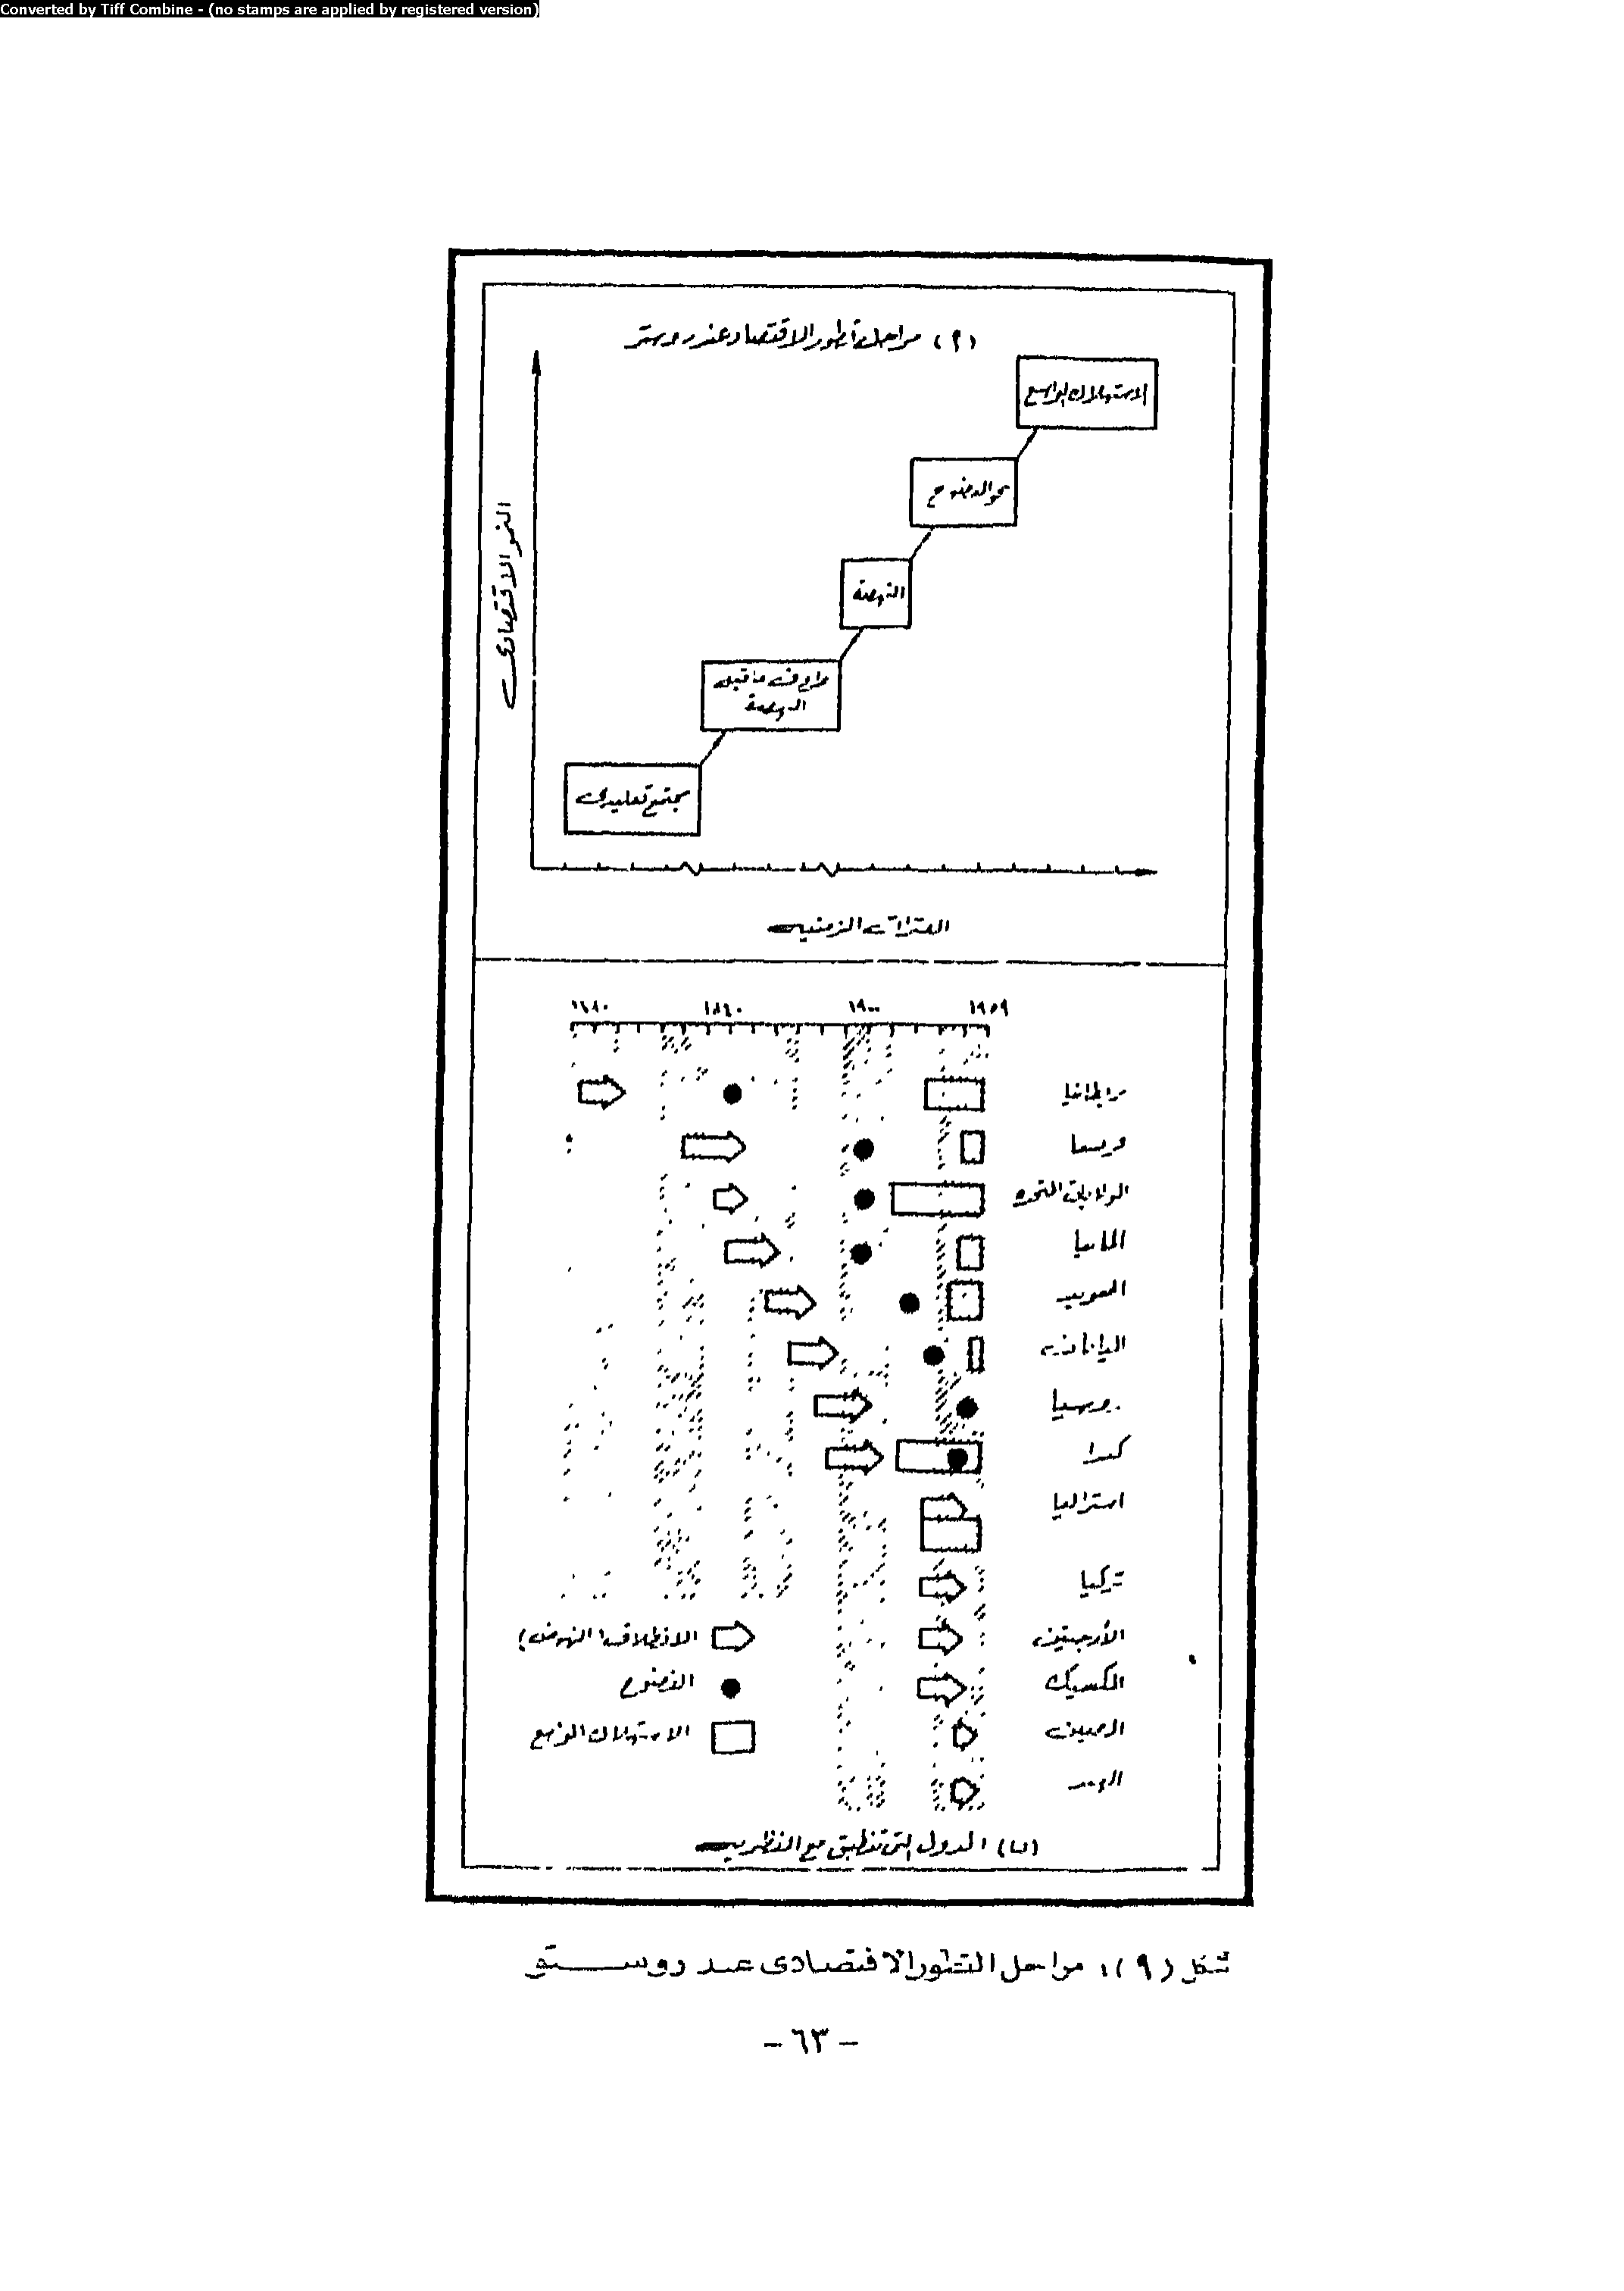 Converted by Tiff Combine - (no stamps are applied by registered version)
(٢) مراحل تطور الاقتصاد عند روستو
الاستهلاك الواسع
نحو النضوج
النهضة
ما قبل
النهضة
مجتمع تقليدى
النمو الاقتصادى
الفترات الزمنيه
١٧٨٠ ١٨٤٠ ١٩٠٠ ١٩٥٩
بريطانيا
فرنسا
الولايات المتحده
المانيا
السويد
اليابان
روسيا
كندا
استراليا
تركيا
الأرجنتين
الانطلاق (النهوض)
المكسيك
النضوج
الصين
الاستهلاك الواسع
الهند
(ب) الدول التى تنطبق مع النظريه
شكل (٩): مراحل التطور الاقتصادى عند روستو
- ٦٣ -